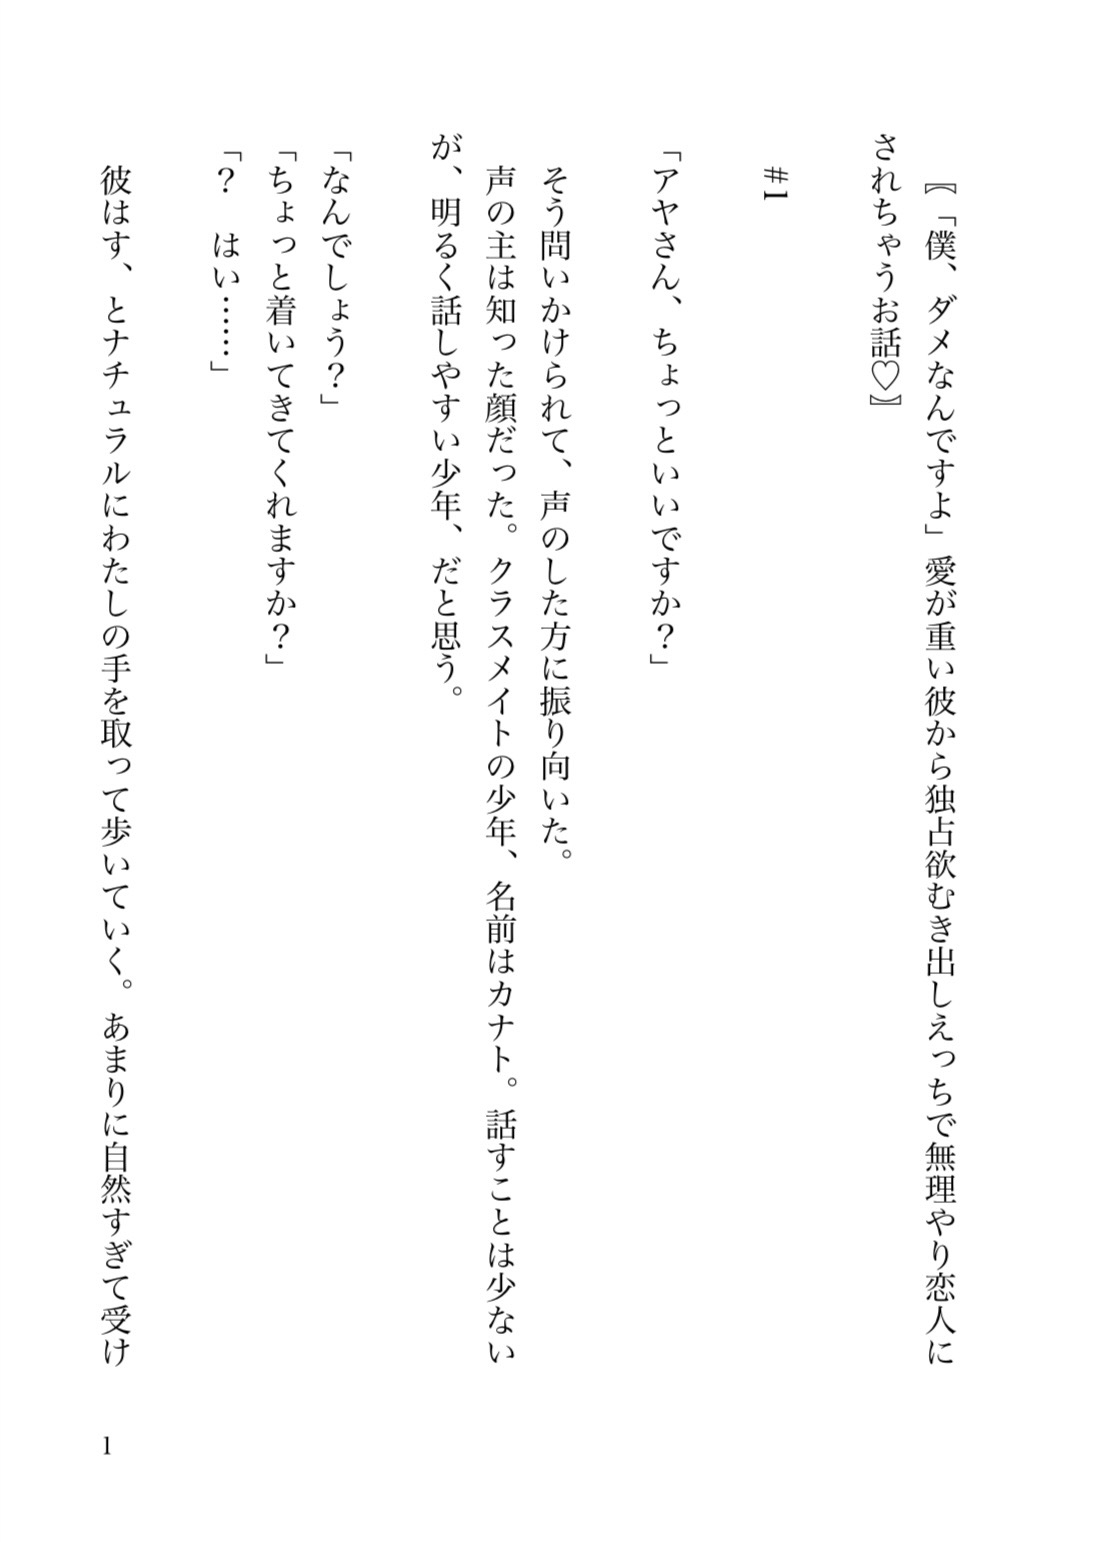 【「僕、ダメなんですよ」愛が重い彼から独占欲むき出しえっちで無理やり恋人に
されちゃうお話♡】
#1
「アヤさん、ちょっといいですか？」
そう問いかけられて、声のした方に振り向いた。
声の主は知った顔だった。クラスメイトの少年、名前はカナト。話すことは少ない
が、明るく話しやすい少年、だと思う。
「なんでしょう？」
「ちょっと着いてきてくれますか？」
「？　はい……」
彼はす、とナチュラルにわたしの手を取って歩いていく。あまりに自然すぎて受け
1